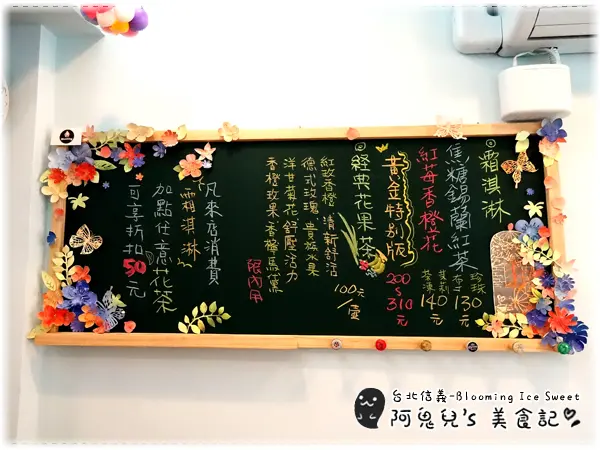 霜淇淋
焦糖錫蘭紅茶
珍珠 130元
茶凍 140元
紅莓香橙花
200~310元
黃金特別版
經典花果茶
100元/壺
紅玫香橙 清新舒活
德式玫瑰 貴族水果
洋甘菊花 舒壓活力
香橙玫果 香檳馬黛
限內用
凡來店消費
霜淇淋
加點任意花茶
可享折扣50元
台北信義-Blooming Ice Sweet
阿鬼兒's 美食記